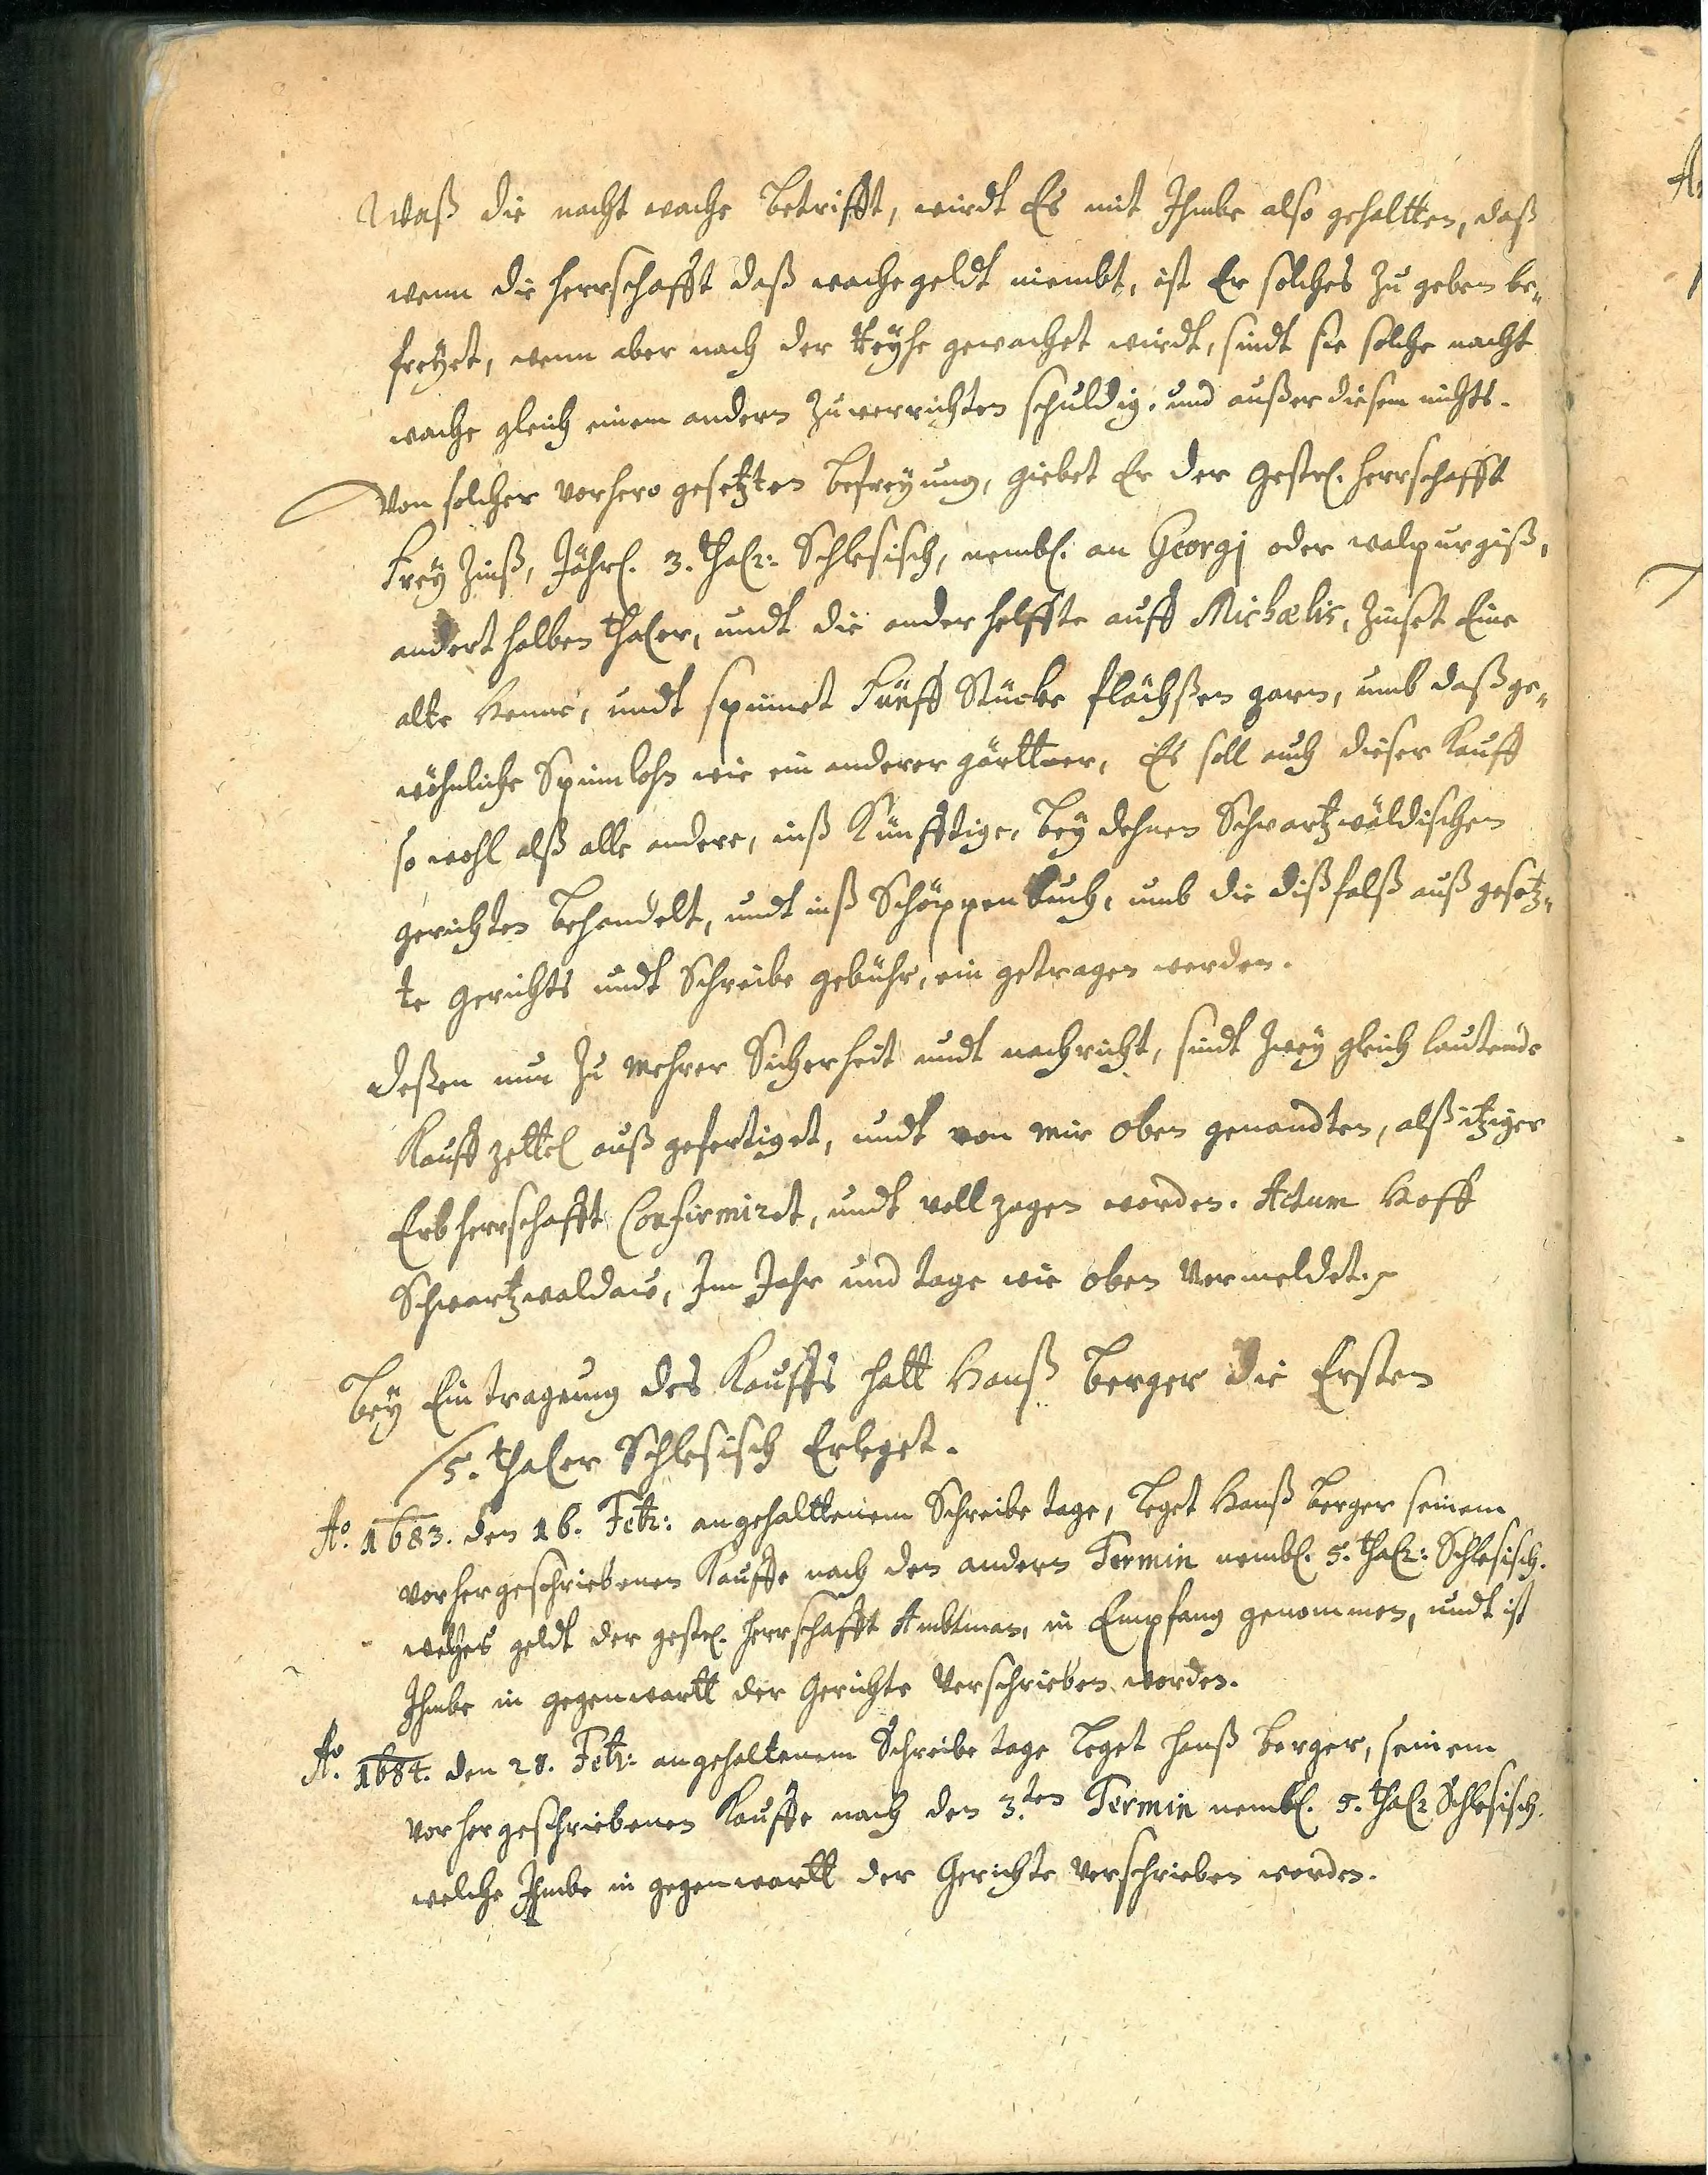 Waß die nacht wache betrifft, wirdt Es mit Ihmbe also gehaltten, daß
wenn die herrschafft daß wachegeldt niembt, ist Er solches Zu geben be„
freyet, wenn aber nach der Reyhe gewachet wirdt, sindt sie solche nacht
wache gleich einem andern Zuverrichten schuldig, und außer diesem nichts.
Von solcher vorhero gesetzten befreyung, giebet Er der Gestr. herrschafft
Frey Zinß, Jährl. 3. thalr: Schlesisch, nembl. an Georgj oder walpurgiß,
andert halben thaler, undt die ander helffte auff Michælis, Zinset Eine
alte Henne, undt spinnet Fünff Stücke flächßen garn, umb daß ge„
wöhnliche Spinnlohn wie ein anderer gärttner, Es soll auch dieser Kauff
so wohl alß alle andere, inß Künfftige, bey dehnen Schwartzwäldischen
gerichten behandelt, undt inß Schöppenbuch, umb die dißfalß außgesetz„
te Gerichts undt Schreibe gebühr, ein getragen werden.
deßen nun Zu Mehrer Sicherheit undt nachricht, sindt Zwey gleich lautende
Kauff zettel auß gefertiget, undt von Mir oben genandten, alß itziger
Erbherrschafft Confirmirt, undt voll zogen worden. Actum Hoff
Schwartzwaldau, Im Jahr und tage wie oben Vermeldet.
Bey Ein tragung des Kauffs hatt Hanß Berger die Ersten
5. thaler Schlesisch Erleget.
Ao. 1683. den 16. Febr: angehalttenem Schreibe tage, Leget Hanß Berger seinem
vorhergeschriebenen Kauffe nach den andern Termin nembl. 5. thalr: Schlesisch.
welches geldt der gestr. herrschafft Ambtman, in Empfang genommen, undt ist
Ihmbe in gegenwartt der Gerichte Verschrieben worden.
Ao. 1684. den 28. Febr: angehaltenem Schreibe tage Leget hanß Berger, seinem
vorhergeschriebenen Kauffe nach den 3.ten Termin nembl. 5. thalr Schlesisch.
welche Ihmbe in gegenwartt der Gerichte verschrieben worden.